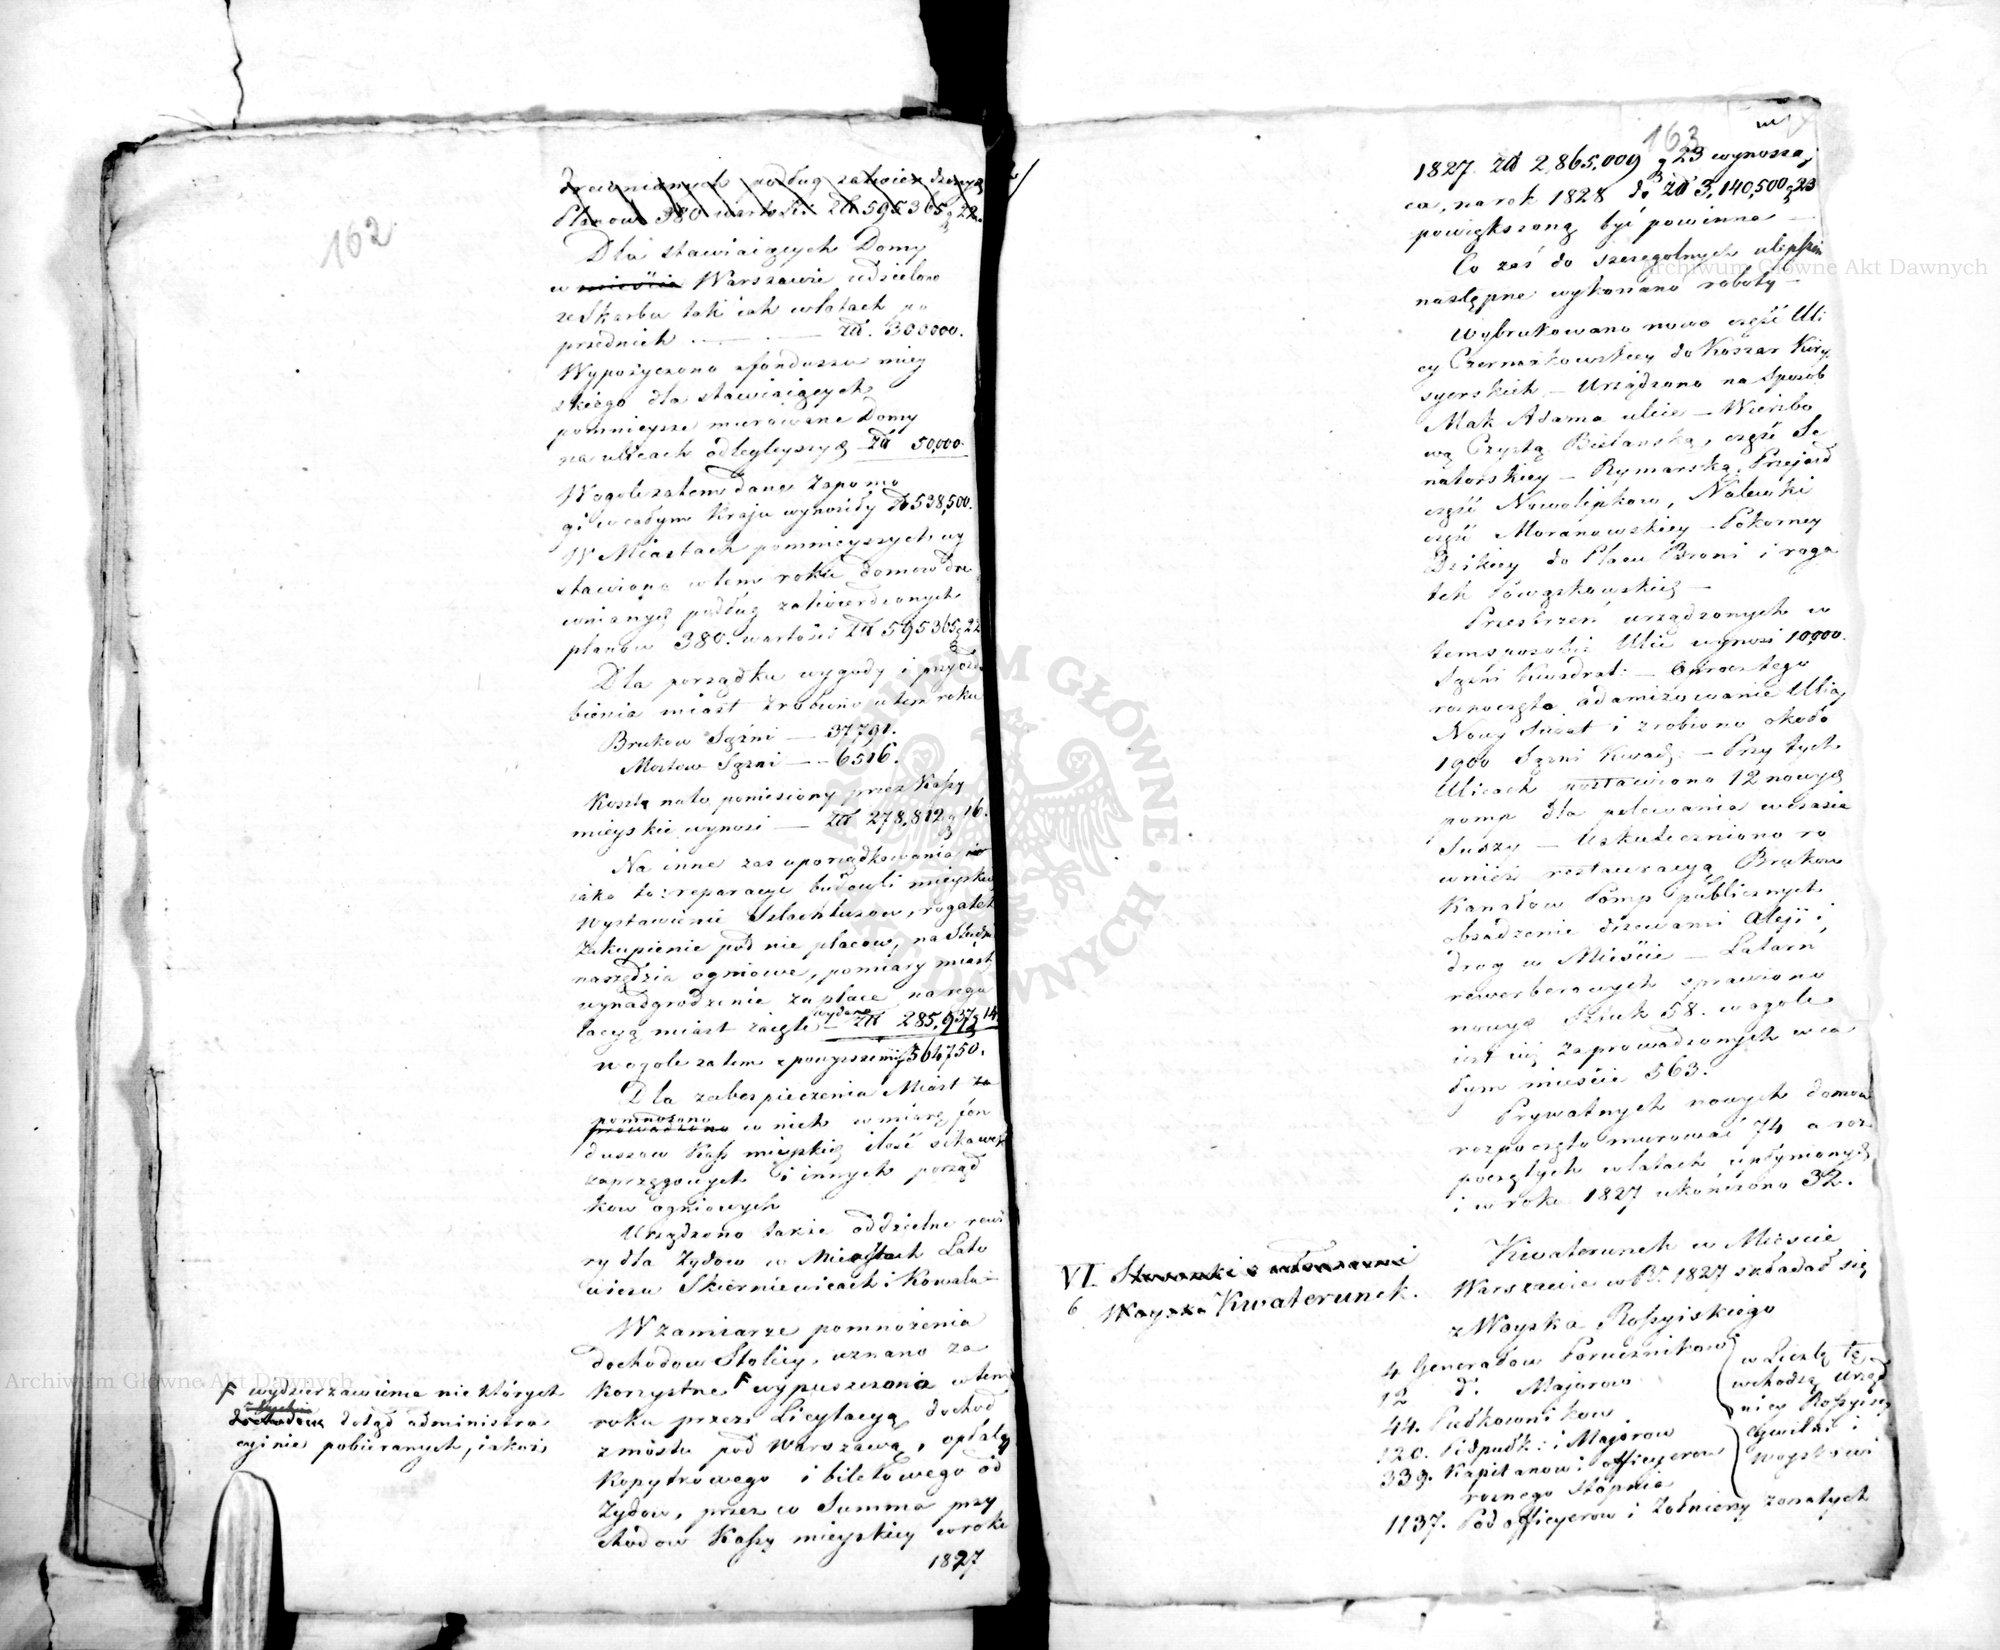 162
drewnianych podług zatwierdzonych
Planow 380 wartości Zł 595365 g 22.
Dla stawiaiących Domy
w mieście Warszawie udzielono
ze Skarbu tak iak w latach po
przednich . — . — Zł. 300000.
Wypożyczono z funduszu miey
skiego dla stawiaiących
pomnieysze murowane Domy
na ulicach odlegleyszych Zł 50,000.
W ogole zatem dane Zapomo
gi w całym Kraju wynosiły Zł 538,500.
W Miastach pomnieyszych wy
stawiono w tem roku domow dre
wnianych podług zatwierdzonych
planow 380. wartości Zł 595365 g 22
Dla porządku wygody i przyozdo
bienia miast zrobiono w tem roku
Brukow Sążni — 37791.
Mostow Sążni — 6516.
Koszt na to poniesiony przez Kassy
mieyskie wynosi — Zł 278,812 g 16.
Na inne zas uporządkowania
iako to: reparacye budowli mieyskich
wystawienie Szlachtuzow, rogatek
Zakupienie pod nie placow, na Studnie
narzędzia ogniowe, pomiary miast
wynadgrodzenie za place na regu
lacyą miast zaięte wydano Zł 285,937 g 14.
w ogole zatem z powyższemi Zł 564,750.
Dla zabezpieczenia Miast za
pomnożono
prowadzono w nich w miarę fun
duszow Kass mieyskich ilość sikawek
zaprzęgowych i innych porząd
kow ogniowych
Urządzono także oddzielne rewi
ry dla Żydow w Miastach Łato
wiczu Skierniewicach i Kowalu
W zamiarze pomnożenia
dochodow Stolicy, uznano za
korzystne F wypuszczenia w tem
roku przez Licytacyą dochod
z mostu pod Warszawą, opłaty
kopytkowego i biletowego od
Żydow, przez co Summa przy
chodow Kassy mieyskiey w roku
1827
F wydzierzawienie niektórych
dochodow dotąd administra
cyinie pobieranych, iakoż
163
1827. Zł 2,865,009 g 23 wynosza
ca, na rok 1828 do Zł 3,140,500 g 23
powiększoną być powinna —
Co zaś do szczegolnych ulepszeń
następne wykonano roboty —
Wybrukowano nowo część Uli
cy Czerniakowskiey do Koszar Kiry
syerskich — Urządzono na Sposob
Mak Adama ulice — Wierzbo
wą Czystą Bielańską, część Se
natorskiey — Rymarską, Przejazd
część Nowolipkow, Nalewki
część Moranowskiey — Pokorney
Dzikiey do Placu Broni i roga
tek Powązkowskich —
Przestrzeń urządzonych w
tem sposobie Ulic wynosi 10,000.
Sążni Kwadrat: — Oprocz tego
rozpoczęto adamizowanie Ulicy
Nowy Świat i zrobiono około
1900 Sążni Kwad: — Przy tych
Ulicach postawiono 12 nowych
pomp dla polewania w czasie
Suszy — Uskuteczniono ro
wnież restauracyą Brukow
Kanałow Pomp publicznych
obsadzenie drzewami Aleji i
drog w Mieście — Latarń
rewerberowych sprawiono
nowych Sztuk 58. w ogole
iest ich zaprowadzonych w ca
łym mieście 563.
Prywatnych nowych domow
rozpoczęto murować 74 a roz
poczętych w latach upłynionych
i w roku 1827 ukończono 32.
VI. Stosunki z
6 Woysko Kwaterunek.
Kwaterunek w Mieście
Warszawie w R. 1827 składał się
z Woyska Rossyiskiego
4 Generałow Porucznikow
12 d°. Majorow
44. Pułkownikow
120. Podpułk: i Majorow
339. Kapitanow i officyerow
roznego Stopnia
w Liczbę tę
wchodzą Urzęd
nicy Rossyiscy
Cywilni i
woyskowi
1137. Podofficyerow i Żołnierzy zonatych
Archiwum Główne Akt Dawnych
Archiwum Główne Akt Dawnych
ARCHIWUM GŁÓWNE AKT DAWNYCH